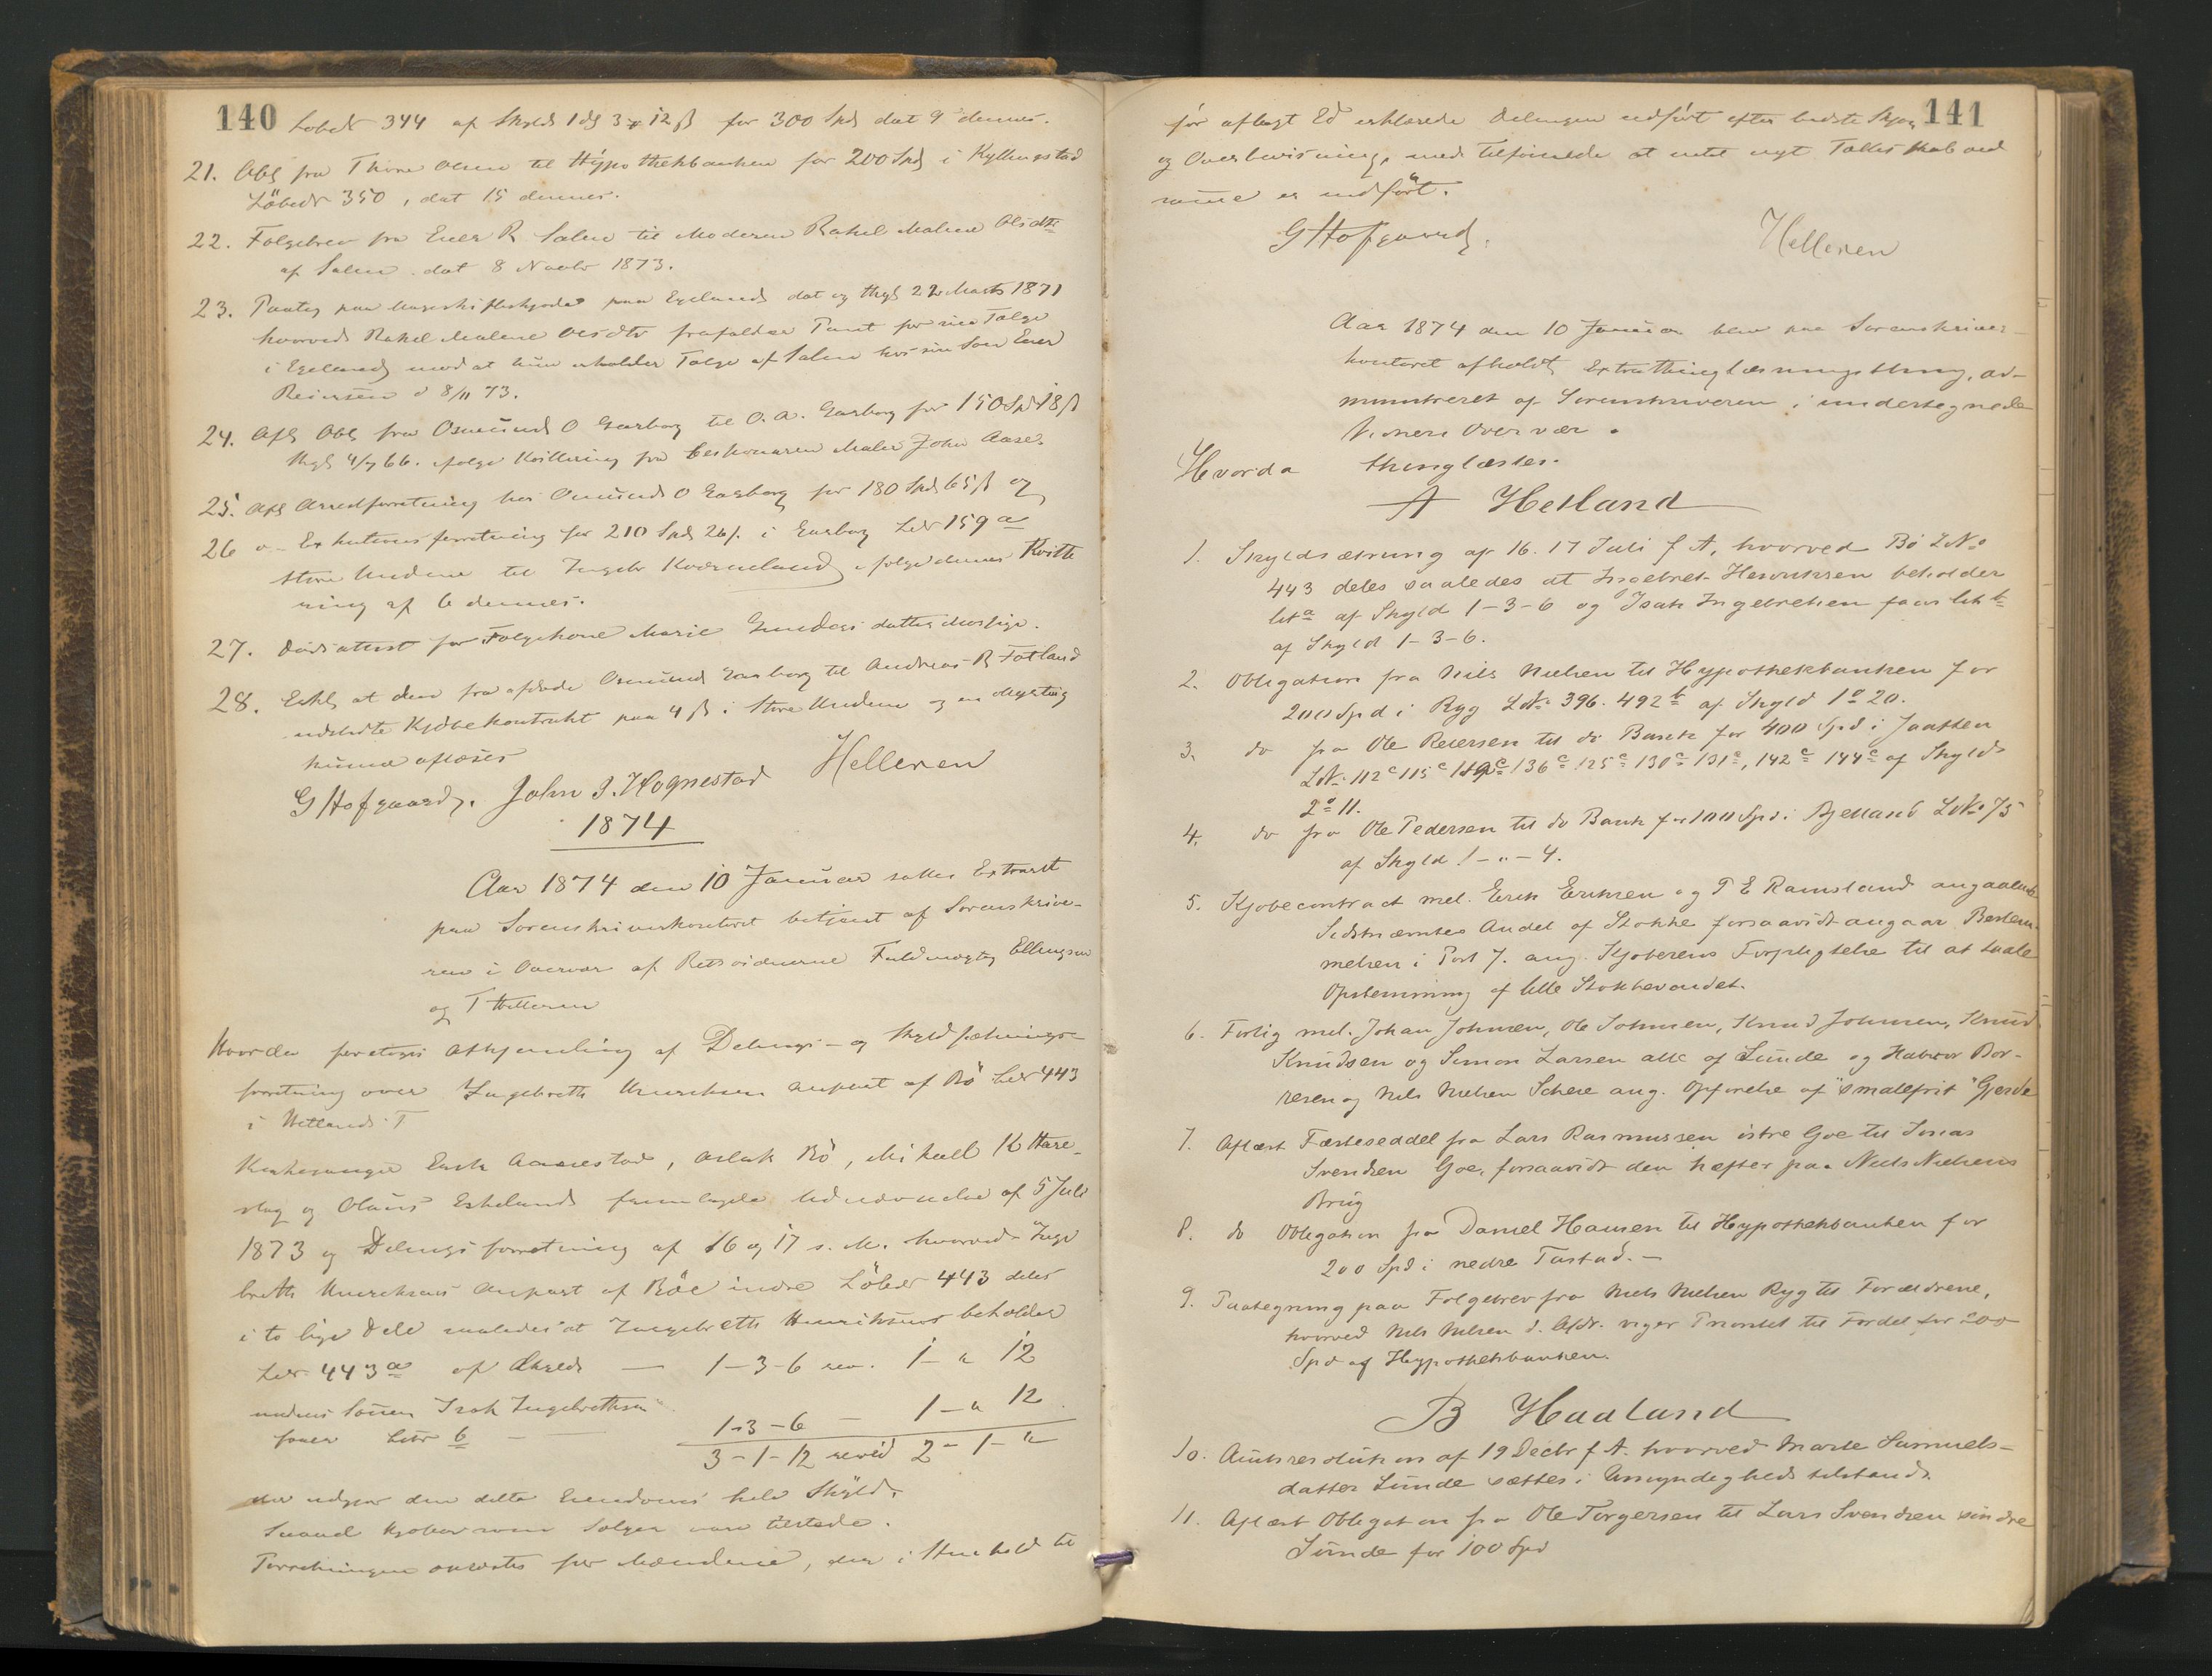 140
Løbnr 344 af Skyld 1 dl 3 12 ß for 300 Spd dat 9 dennes.
21. Obl fra Thore Olsen til Hypothekbanken for 200 Spd i Kyllingstad
Löbenr 350, dat 15 dennes.
22. Folgebrev fra Ener R Salen til Moderen Rakel Malene Olsdtr
af Salen dat 8 Novbr 1873.
23. Paateg paa Mageskifteskjøde paa Egelands dat og thgl 22 Marts 1871
hvorved Rakel Malene Olsdtr frafalder Pant for sin Folge
i Egelands mod at hun erholder Folge af Salen hos sin Søn Ener
Reiersen d 8/11 73.
24. Afl Obl fra Osmund O Garborg til O. A. Garborg for 150 Spd 18 ß
thgl 4/7 66. ifølge Kvittering fra Cessionaren Maler John Aase.
25. Afl Arrestforretning hos Osmund O Garborg for 180 Spd 65 ß og
26 o- Exkutionsforretning for 210 Spd 26 ß. i Garborg Lnr 159 a
Store Undem til Ingebr Kverneland, ifolge dennes Kvitte
ring af 6 dennes.
27. Dødsattest for Folgekone Marie Gundersdatter
28. Erkl at den fra afdøde Osmund Garborg til Andreas R Fotland
udstedte Kjøbekontrakt paa 4 ß i Store Undem og en Myrteig
kunne aflæses
G Hofgaard. John J. Hognestad Helleren
1874
Aar 1874 den 10 Januar sattes Extraret
paa Sorenskriverkontoret betjent af Sorenskrive-
ren i Overvær af Retsvidnerne Fuldmægtig Ellingsen
og T Helleren
Hvorda foretoges Afhjemling af Delings- og Skyldsætnings-
forretning over Ingebreth Henriksens Anpart af Bö Lnr 443
i Hetlands T
Kirkesanger Enok Aanestad, Aslak Bö, Mikael K Hare-
stag og Olaus Eskelands fremlagde Udnævnelse af 5 Juli
1873 og Delingsforretning af 16 og 17 s. M. hvorved Inge
breth Henriksens Anpart af Böe indre Löbnr 443 deles
i to lige Dele saaledes at Ingebreth Henriksens beholder
Lnr 443 a af Skyld — 1-3-6 rev. 1- " 12
medens Sønnen Isak Ingebrethsen
faaer Litr b — 1-3-6 — 1- " 12
3-1-12 revid 2-1-"
der udgjør den delte Eiendoms hele Skyld.
Saavel Kjøber som Sælger vare tilstede.
Forretningen oplæstes for Mændene, der i Henhold til
141
før aflagt Ed erklærede Delingen udført efter bedste Skjøn
og Overbevisning, med Tilføiende at intet nyt Fællesskab ved
samme er indført.
G Hofgaard. Helleren
Aar 1874 den 10 Januar blev paa Sorenskriver-
kontoret afholdt Extrathinglæsningsthing, ad-
ministreret af Sorenskriveren i undertegnede
Vidners Overvær.
Hvorda thinglæstes.
A Hetland
1. Skyldsætning af 16. 17 Juli f A, hvorved Bö LNo
443 deles saaledes at Ingebret Henriksen beholder
lit a af Skyld 1-3-6 og Isak Ingebretsen faar litr b
af Skyld 1-3-6.
2. Obligation fra Nils Nielsen til Hypothekbanken for
200 Spd i Ryg LNo 396. 492 b af Skyld 1 o 20.
3. do fra Ole Reiersen til do Bank for 400 Spd i Jaatten
LNo 112 c 115 c 136 c 125 c 130 c 131 c, 142 c 144 c af Skyld
2 o 11.
4. do fra Ole Pedersen til do Bank for 100 Spd i Bjelland LNo 75
af Skyld 1 - " - 4.
5. Kjøbecontract mel. Erik Eriksen og P E Ramsland angaaende
Sidstnævntes Andel af Stokke forsaavidt angaar Bestem-
melsen i Post 7. ang. Kjøberens Forpligtelse til at taale
Opstemning af lille Stokkevandet.
6. Forlig mel. Johan Johnsen, Ole Johnsen, Knud Johnsen, Knud
Knudsen og Simon Larsen alle af Sunde og Halvor Bor-
resen og Nils Nielsen Scheie ang. Opførelse af "smalefrit" Gjerde
7. Aflæst Fæsteseddel fra Lars Rasmussen østre Goe til Jonas
Svendsen Goe, forsaavidt den hæfter paa Niels Nielsens
Brug
8. do Obligation fra Daniel Hansen til Hypothekbanken for
200 Spd i nedre Tastad. —
9. Paategning paa Folgebrev fra Niels Nielsen Ryg til Forældrene,
hvorved Nils Nielsen d. Ældr. viger Prioritet til Fordel for 200
Spd af Hypothekbanken.
B Haaland
10. Amtsresolution af 19 Decbr f A. hvorved Marte Samuels-
datter Sunde sættes i Umyndighedstilstand.
11. Aflæst Obligation fra Ole Torgersen til Lars Svendsen søndre
Sunde for 100 Spd